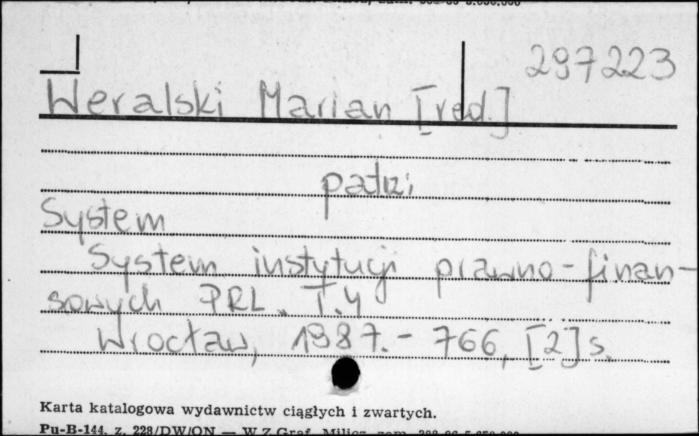 297223
Weralski Marian [red.]
patrz:
System
System instytucji prawno-finan-
sowych PRL. T.4
Wrocław, 1987.- 766, [2] s.
Karta katalogowa wydawnictw ciągłych i zwartych.
Pu-B-144. z. 228/DW/ON — W.Z.Graf. Milicz, zam.